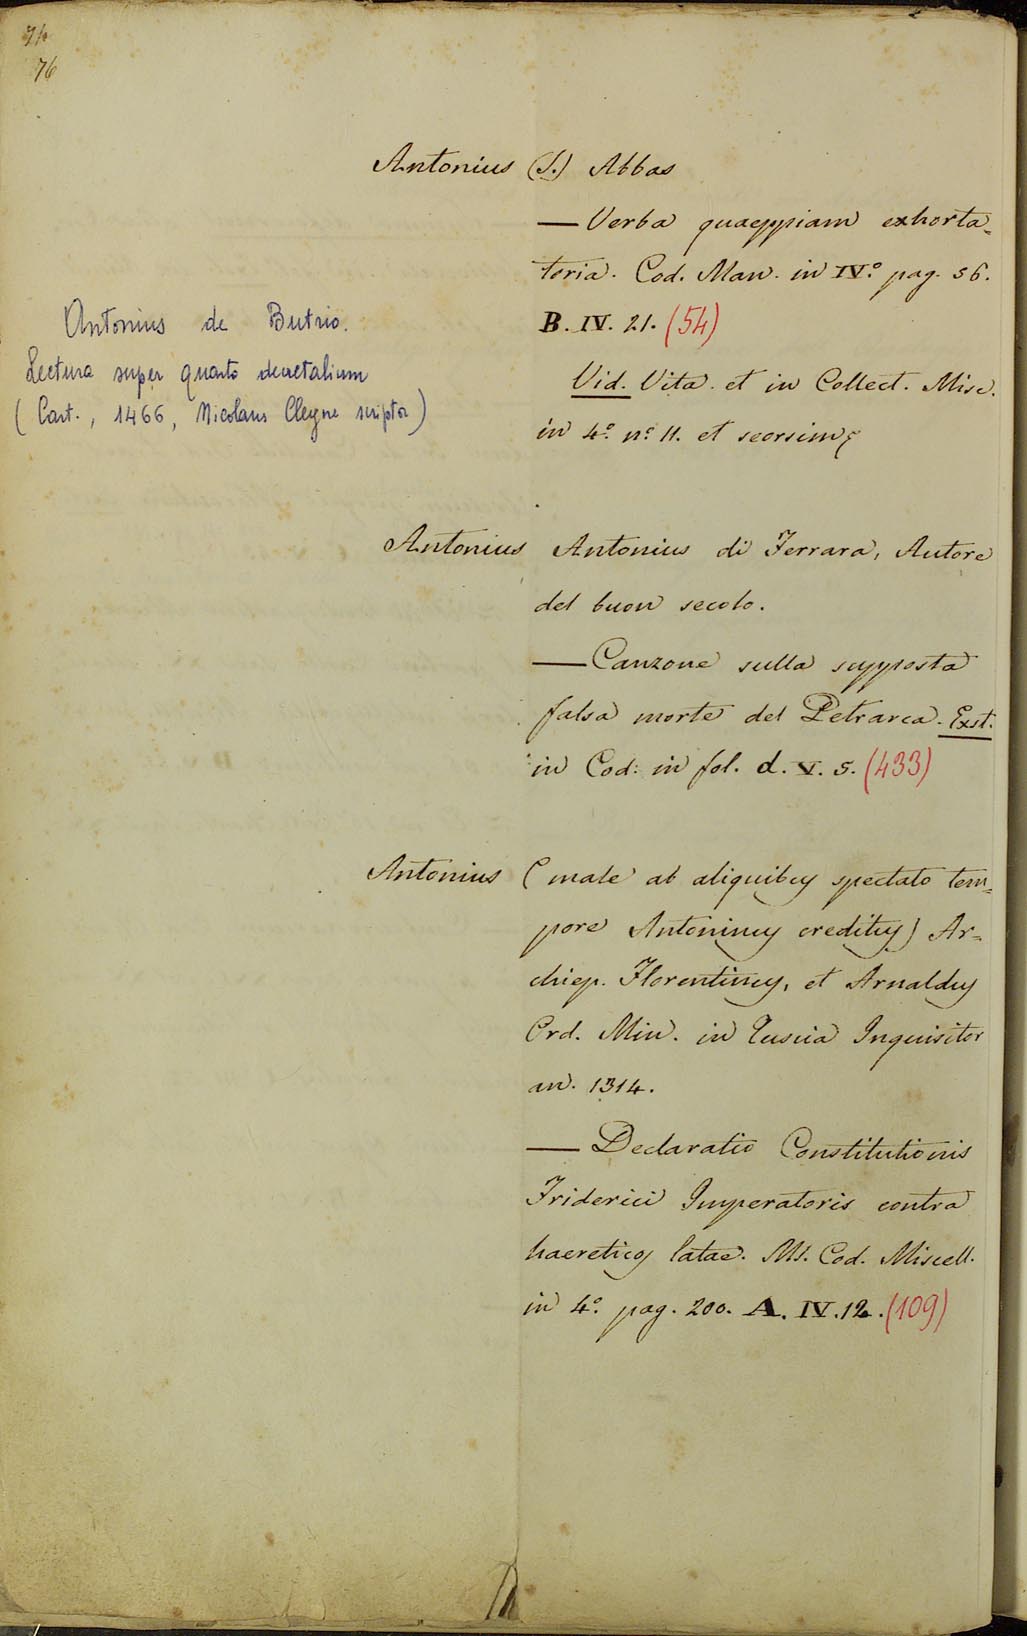 74
76
Antonius (S.) Abbas
— Verba quaeppiam exhorta=
toria. Cod. Man. in IV.º pag. 56.
B. IV. 21. (54)
Vid. Vita et in Collect. Misc.
in 4.º n.º 11. et seorsim
Antonius de Butrio.
Lectura super quarto decretalium
(Cart., 1466, Nicolaus Cleyne scriptor)
Antonius Antonius di Ferrara, Autore
del buon secolo.
— Canzone sulla supposta
falsa morte del Petrarca. Exst.
in Cod: in fol. d. V. 5. (433)
Antonius (male ab aliquibus spectato tem=
pore Antoninus creditus) Ar=
chiep. Florentinus, et Arnaldus
Ord. Min. in Tuscia Inquisitor
an. 1314.
— Declaratio Constitutionis
Friderici Imperatoris contra
haereticos latae. Ms. Cod. Miscell.
in 4.º pag. 200. A. IV. 12. (109)